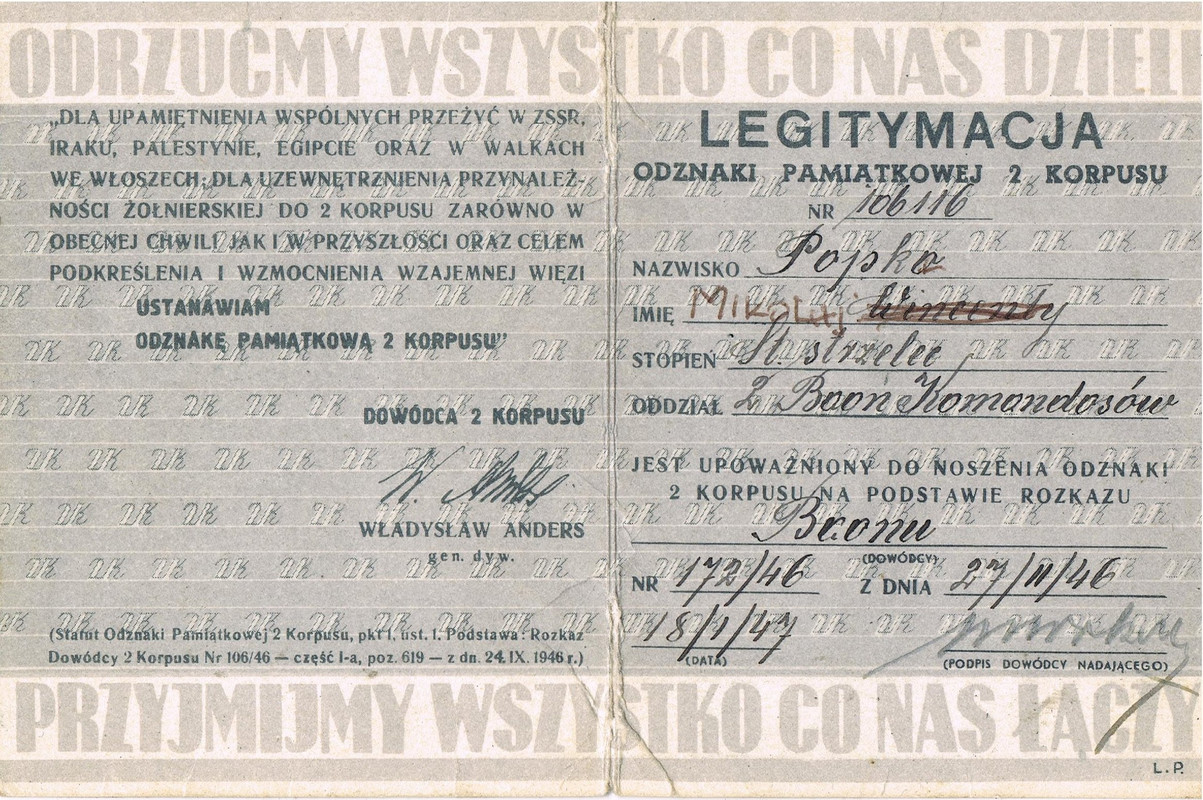 ODRZUĆMY WSZYSTKO CO NAS DZIELI
„DLA UPAMIĘTNIENIA WSPÓLNYCH PRZEŻYĆ W ZSSR,
IRAKU, PALESTYNIE, EGIPCIE ORAZ W WALKACH
WE WŁOSZECH; DLA UZEWNĘTRZNIENIA PRZYNALEŻ-
NOŚCI ŻOŁNIERSKIEJ DO 2 KORPUSU ZARÓWNO W
OBECNEJ CHWILI JAK I W PRZYSZŁOŚCI ORAZ CELEM
PODKREŚLENIA I WZMOCNIENIA WZAJEMNEJ WIĘZI
USTANAWIAM
ODZNAKĘ PAMIĄTKOWĄ 2 KORPUSU”
DOWÓDCA 2 KORPUSU
W. Anders
WŁADYSŁAW ANDERS
gen. dyw.
(Statut Odznaki Pamiątkowej 2 Korpusu, pkt 1, ust. 1. Podstawa: Rozkaz
Dowódcy 2 Korpusu Nr 106/46 — część I-a, poz. 619 — z dn. 24. IX. 1946 r.)
LEGITYMACJA
ODZNAKI PAMIĄTKOWEJ 2 KORPUSU
NR 106116
NAZWISKO Popko
IMIĘ MIKOŁAJ Wincenty
STOPIEŃ St. strzelec
ODDZIAŁ 2 Baon Komandosów
JEST UPOWAŻNIONY DO NOSZENIA ODZNAKI
2 KORPUSU NA PODSTAWIE ROZKAZU
Baonu
(DOWÓDCY)
NR 172/46 Z DNIA 27/11/46
18/1/47
(DATA) (PODPIS DOWÓDCY NADAJĄCEGO)
PRZYJMIJMY WSZYSTKO CO NAS ŁĄCZY
L. P.